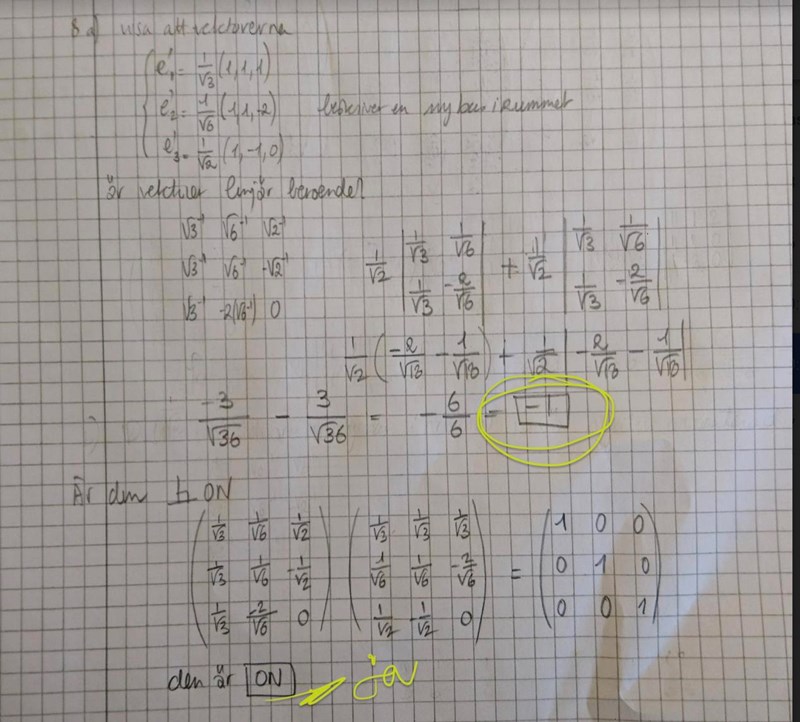 8 a) visa att vektorerna
e'₁ = 1/√3 (1,1,1)
e'₂ = 1/√6 (1,1,-2) beskriver en ny bas i rummet
e'₃ = 1/√2 (1,-1,0)
är vektorer linjär beroende?
√3⁻¹ √6⁻¹ √2⁻¹
√3⁻¹ √6⁻¹ -√2⁻¹
√3⁻¹ -2(√6⁻¹) 0
1/√2 | 1/√3 1/√6 ; 1/√3 -2/√6 | + 1/√2 | 1/√3 1/√6 ; 1/√3 -2/√6 |
1/√2 ( -2/√18 - 1/√18 ) + 1/√2 | -2/√18 - 1/√18 |
-3/√36 - 3/√36 = -6/6 = -1
Är den ON
( 1/√3 1/√6 1/√2 ) ( 1/√3 1/√3 1/√3 ) ( 1 0 0 )
( 1/√3 1/√6 -1/√2 ) ( 1/√6 1/√6 -2/√6 ) = ( 0 1 0 )
( 1/√3 -2/√6 0 ) ( 1/√2 -1/√2 0 ) ( 0 0 1 )
den är ON ja